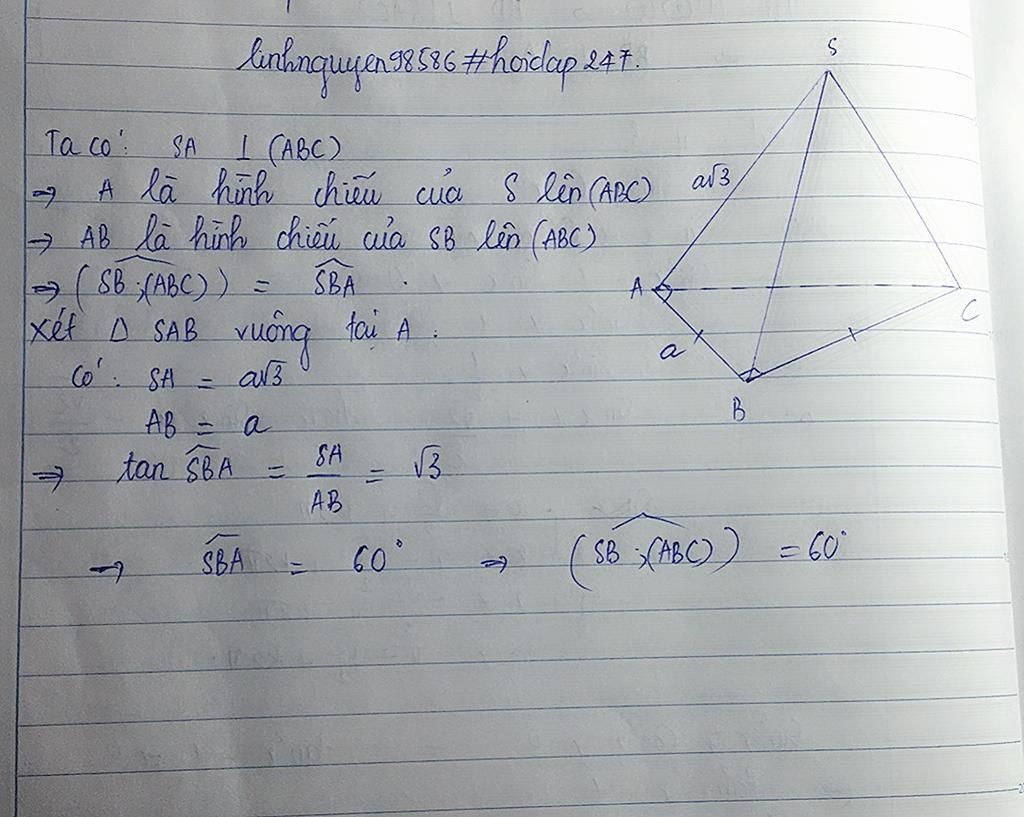 linhnguyen98586#hoidap247.
Ta có: SA ⊥ (ABC)
⇒ A là hình chiếu của S lên (ABC)
→ AB là hình chiếu của SB lên (ABC)
⇒ (SB;(ABC))^ = SBA^ .
Xét Δ SAB vuông tại A :
Có: SA = a√3
AB = a
⇒ tan SBA^ = SA/AB = √3
→ SBA^ = 60° ⇒ (SB;(ABC))^ = 60°
S
a√3
A
C
a
B